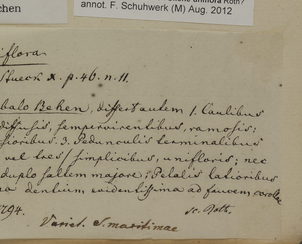 chen
uniflora Roth?
annot. F. Schuhwerk (M) Aug. 2012
iflora
Stueck x. p. 46. n. 11.
balo Behen, differt autem 1. Caulibus
diffusis, sempervirentibus, ramosis:
tioribus 3. Pedunculis terminalibus
vel tres) simplicibus, unifloris; nec
duplo saltem majore; Petalis latioribus
dentium evidentissima ad faucem corollae
1794.
Roth.
Variet. S. maritimae